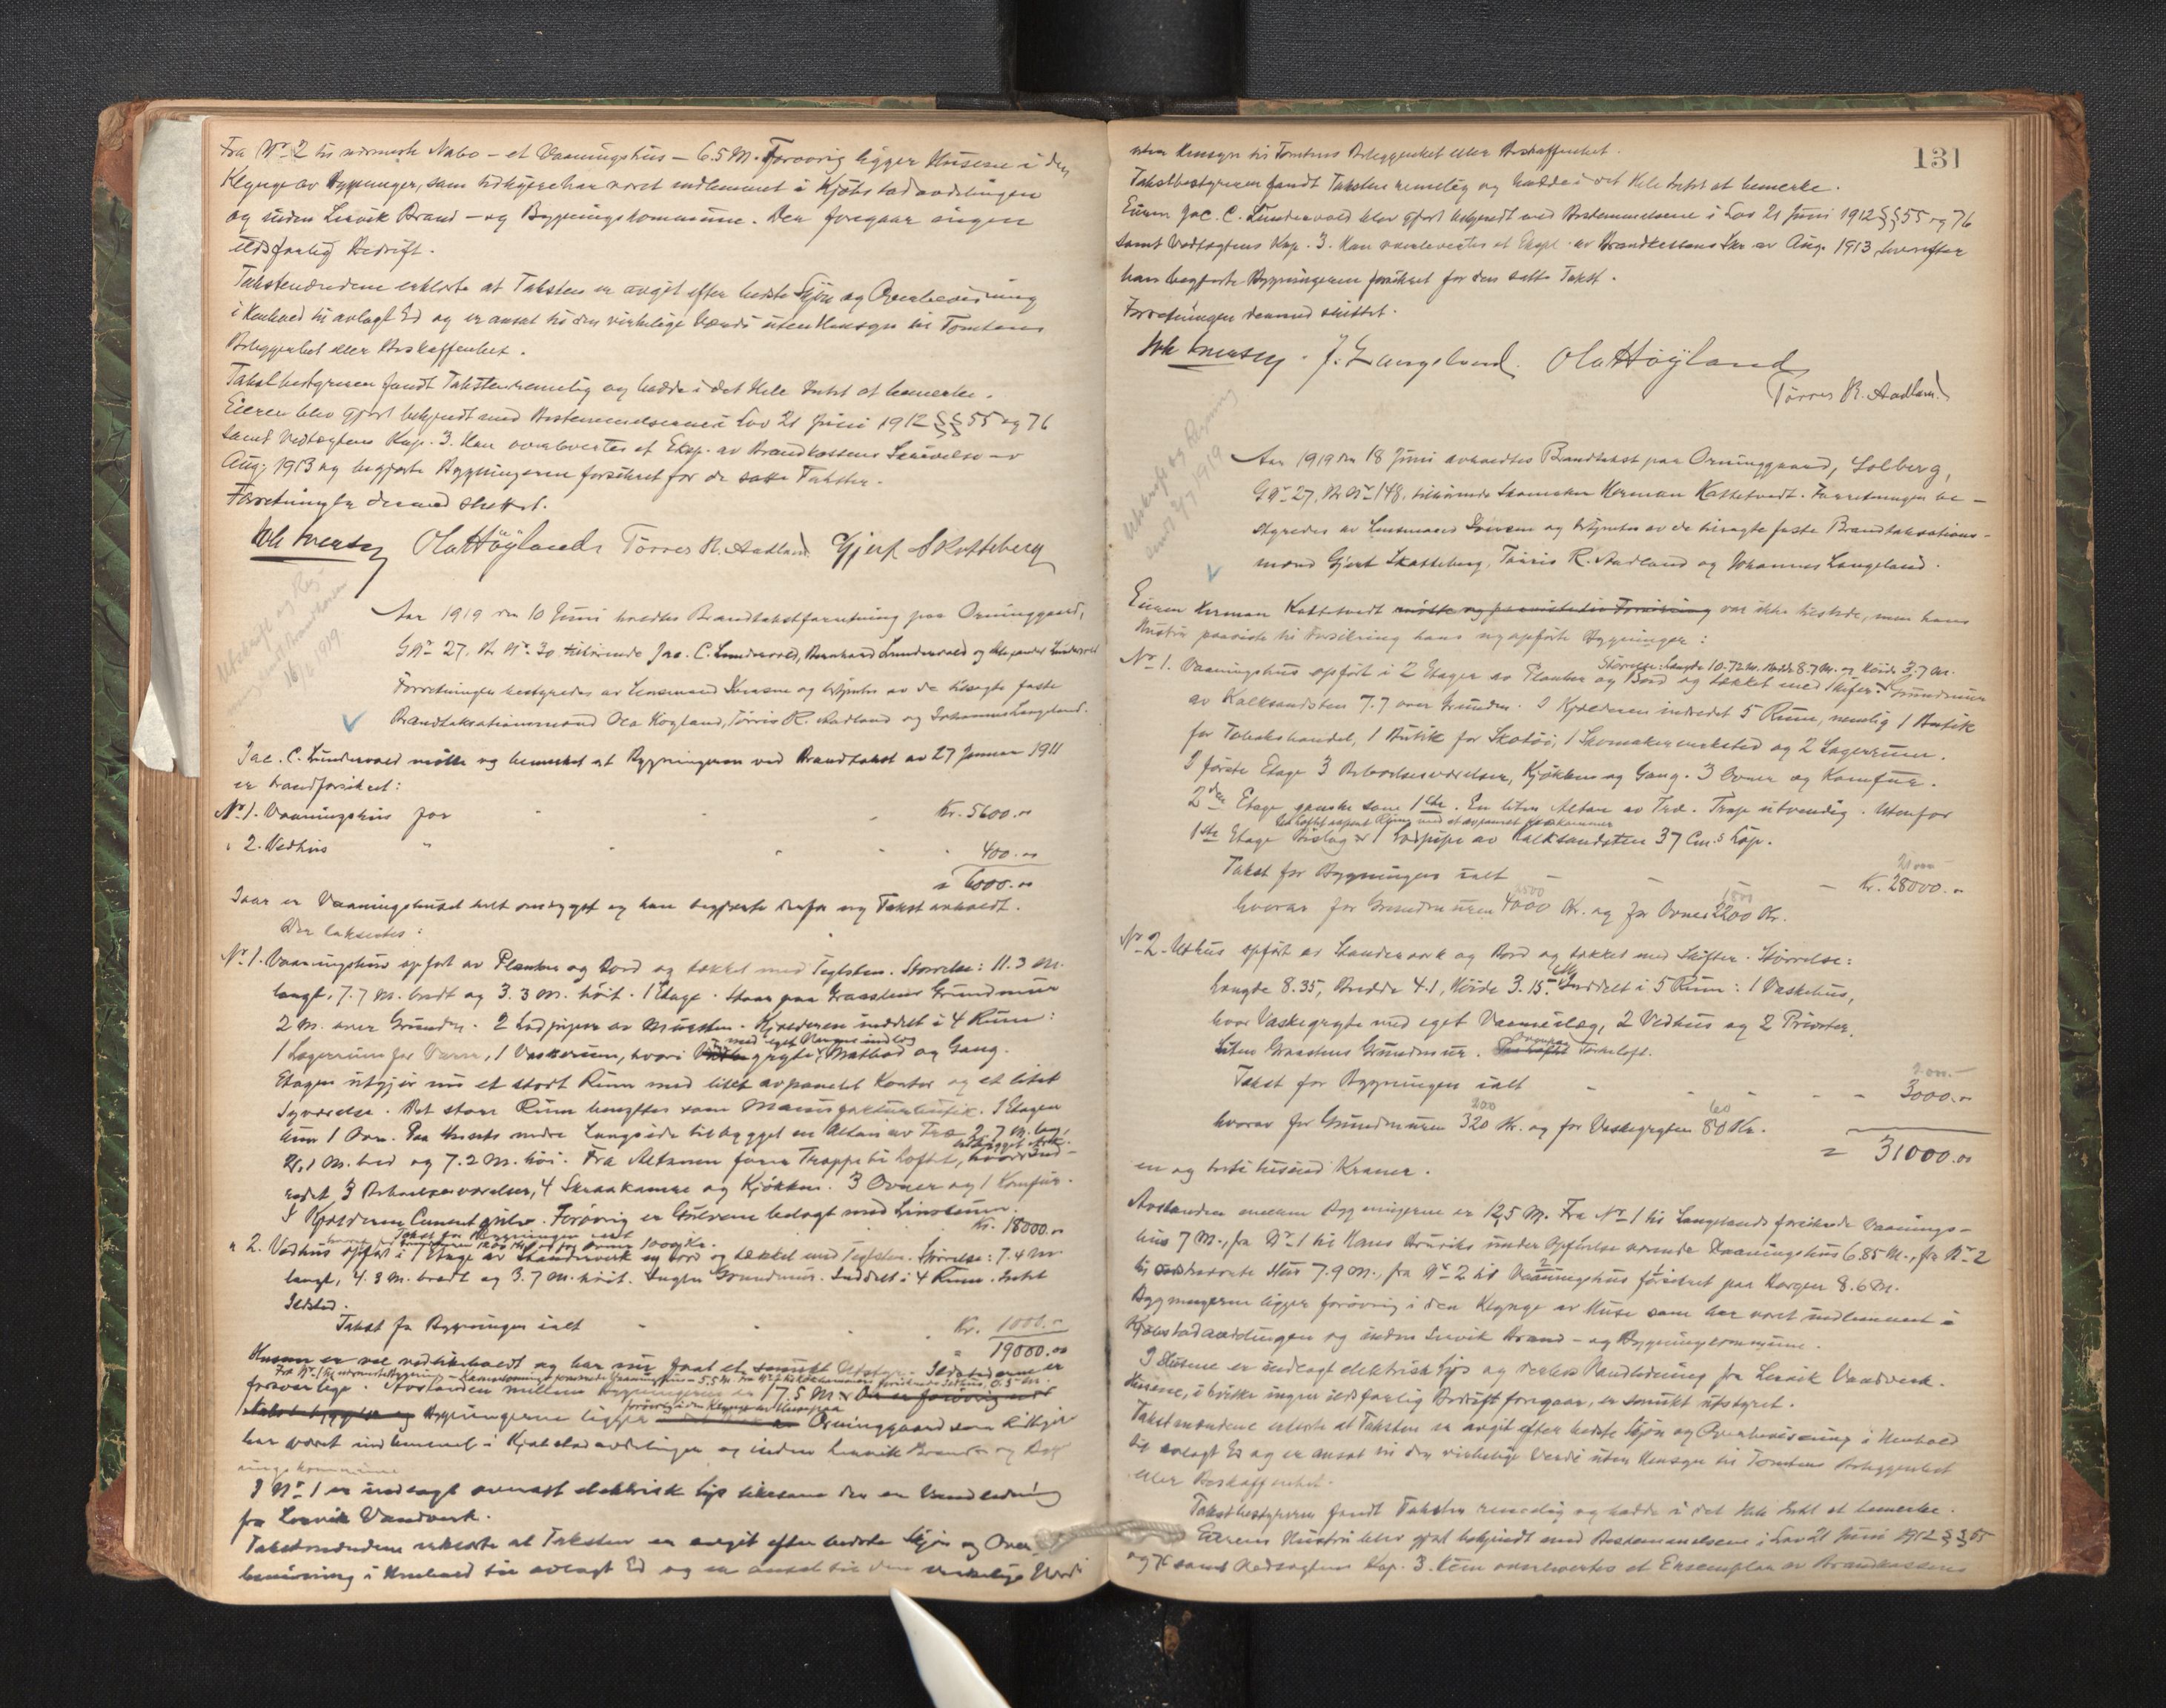 Fra No 2 til nærmeste Nabo – et Vaaningshus – 6.5 M. Forøvrig ligger Husene i den
Klynge av Bygninger, som tidligere har været indlemmet i Kjøbstadavdelingen
og inden Lervik Brand- og Bygningskommune. Der foregaar ingen
ildsfarlig Bedrift.
Takstmændene erklærte at Taksten er avgit efter bedste Skjøn og Overbevisning
i Henhold til avlagt Ed og er ansat til den virkelige Værdi uten Hensyn til Tomtens
Beliggenhet eller Beskaffenhet.
Takstbestyreren fandt Taksten rimelig og hadde i det Hele Intet at bemerke.
Eieren blev gjort bekjendt med Bestemmelserne i Lov 21 Juni 1912 §§ 55 og 76
samt Vedtægtens Kap. 3. Han overlevertes et Ekspl. av Brandkassens Skrivelse av
Aug. 1913 og begjærte Bygningerne forsikret for de satte Takster.
Forretningen dermed sluttet.
Ola Høyland Tørres R. Aadland Gjert Skatteberg
Aar 1919 den 10 Juni holdtes Brandtakstforretning paa Orninggaard,
G No 27, Br No 30 tilhørende Jac. C. Lundervold, Bernhard Lundervold og Aleksander Lundervold
Forretningen bestyredes av Lensmand Iversen og utførtes av de tilsagte faste
Brandtakstationsmænd Ola Høyland, Tørris R. Aadland og Johannes Langeland.
Jac. C. Lundervold møtte og bemerket at Bygningerne ved Brandtakst av 27 Januar 1911
er brandforsikret:
No 1. Vaaningshus for - - Kr. 5600.00
" 2. Vedhus " - - - 400.00
= 6000.00
Iaar er Vaaningshuset helt ombygget og han begjærte derfor ny Takst avholdt.
Der taksertes:
No 1. Vaaningshus opført av Planker og Bord og tækket med Teglsten. Størrelse: 11.3 M.
langt, 7.7 M. bredt og 3.3 M. høit. 1 Etage. Staar paa Graastens Grundmur
2 M. over Grunden. 2 Ildpiper av Mursten. Kjælderen inddelt i 4 Rum:
med eget Varmeindlæg
1 Lagerrum for Varer, 1 Vaskerum, hvori gryte, Matbod og Gang.
Etagen utgjør nu et stort Rum med litet avpanelt Kontor og et litet
Syværelse. Det store Rum benyttes som Manufakturbutik. I Etagen
kun 1 Ovn. Paa Husets nordre Langside tilbygget en Altan av Træ 2.7 M. lang,
2.1 M. bred og 7.2 M. høi. Fra Altanen fører Trappe til Loftet, hvor ind-
redet 3 Beboelsesværelser, 4 Skraakamre og Kjøkken. 3 Ovner og 1 Komfur.
I Kjælderen Cementgulv. Forøvrig er Gulvene belagt med Linoleum.
Takst for Bygningen ialt Kr. 18000.00
hvorav for Grundmuren 1200 Kr. og for Ovne 1000 Kr.
" 2. Vedhus opført i 1 Etage av Standerverk og Bord og tækket med Teglsten. Størrelse: 7.4 M
langt, 4.3 M. bredt og 3.7 M. høit. Ingen Grundmur. Inddelt i 4 Rum. Intet
Ildsted.
Takst for Bygningen ialt - - - Kr. 1000.00
= 19000.00
Husene er vel vedlikeholdt og har nu faat et smukt Utstyr. Ildstederne er
forsvarlige. Avstanden mellem Bygningerne er 17.5 M.
Bygningerne ligger forøvrig i den Klynge av Hus paa Orninggaard som tidligere
har været indlemmet i Kjøbstadavdelingen og inden Lervik Brand- og Byg-
ningskommune.
I No 1 er indlagt overalt elektrisk lys likesom der er Vandledning
fra Lervik Vandverk.
Takstmændene erklærte at Taksten er avgit efter bedste Skjøn og Over-
bevisning i Henhold til avlagt Ed og er ansat til den virkelige Værdi
131
uten Hensyn til Tomtens Beliggenhet eller Beskaffenhet.
Takstbestyreren fandt Taksten rimelig og hadde i det Hele Intet at bemerke.
Eieren Jac. C. Lundervold blev gjort bekjendt med Bestemmelserne i Lov 21 Juni 1912 §§ 55 og 76
samt Vedtægtens Kap. 3. Han overlevertes et Ekspl. av Brandkassens Skr. av Aug. 1913, hvorefter
han begjærte Bygningerne forsikret for den satte Takst.
Forretningen dermed sluttet.
J. Langeland. Ola Høyland
Tørres R. Aadland
Utskrift og Regning
sendt 2/7 1919
Aar 1919 den 18 Juni avholdtes Brandtakst paa Orninggaard, Solberg,
G No 27, Br No 148, tilhørende Skomaker Herman Kattetvedt. Forretningen be-
styredes av Lensmand Iversen og utførtes av de tilsagte faste Brandtaksations-
mænd Gjert Skatteberg, Tørris R. Aadland og Johannes Langeland.
Eieren Herman Kattetvedt var ikke tilstede, men hans
Hustru paaviste til Forsikring hans nyopførte Bygninger:
Størrelse: Længde 10.72 M. Bredde 8.7 M. og Høide 3.7 M.
No 1. Vaaningshus opført i 2 Etager av Planker og Bord og tækket med Skifer. Grundmur
av Kalksandsten 7.7 over Grunden. I Kjælderen indredet 5 Rum, nemlig 1 Butik
for Tobakshandel, 1 Butik for Skotøi, 1 Skomakerverksted og 2 Lagerrum.
I første Etage 3 Beboelsesværelser, Kjøkken og Gang. 3 Ovner og Komfur.
2den Etage ganske som 1ste. En liten Altan av Træ. Trap utvendig. Utenfor
1ste Etage Bislag. 1 Ildpipe av Kalksandsten 37 Cm.s Løp.
Takst for Bygningen ialt - - - Kr. 28000.00
hvorav for Grundmuren 4000 Kr. og for Ovner 2200 Kr.
No 2. Uthus opført av Standerverk og Bord og tækket med Skifter. Størrelse:
Længde 8.35, Bredde 4.1, Høide 3.15 M. Inddelt i 5 Rum: 1 Vaskehus,
hvor Vaskegryte med eget Varmeislæg, 2 Vedhus og 2 Priveter.
Liten Graastens Grundmur. Ovenpaa Tørkeloft.
Takst for Bygningen ialt - - - 3000.00
hvorav for Grundmuren 320 Kr. og for Vaskegryten 80 Kr.
= 31000.00
en og treti tusind Kroner.
Avstanden mellem Bygningerne er 12.5 M. Fra No 1 til Langelands forsikrede Vaanings-
hus 7 M., fra No 1 til Hans Henriks under Opførelse værende Vaaningshus 6.85 M., fra No 2
til Hus 7.9 M., fra No 2 til Vaaningshus forsikret paa Haugen 8.6 M.
Bygningerne ligger forøvrig i den Klynge av Huse som har været indlemmet i
Kjøbstadavdelingen og inden Lervik Brand- og Bygningskommune.
I Husene er indlagt elektrisk lys og Vandledning fra Lervik Vandverk.
Husene, i hvilke ingen ildsfarlig Bedrift foregaar, er smukt utstyret.
Takstmændene erklærte at Taksten er avgit efter bedste Skjøn og Overbevisning i Henhold
til avlagt Ed og er ansat til den virkelige Værdi uten Hensyn til Tomtens Beliggenhet
eller Beskaffenhet.
Takstbestyreren fandt Taksten rimelig og hadde i det Hele Intet at bemerke.
Eierens Hustru blev gjort bekjendt med Bestemmelserne i Lov 21 Juni 1912 §§ 55
og 76 samt Vedtægtens Kap. 3. Hun overlevertes et Exemplar av Brandkassens